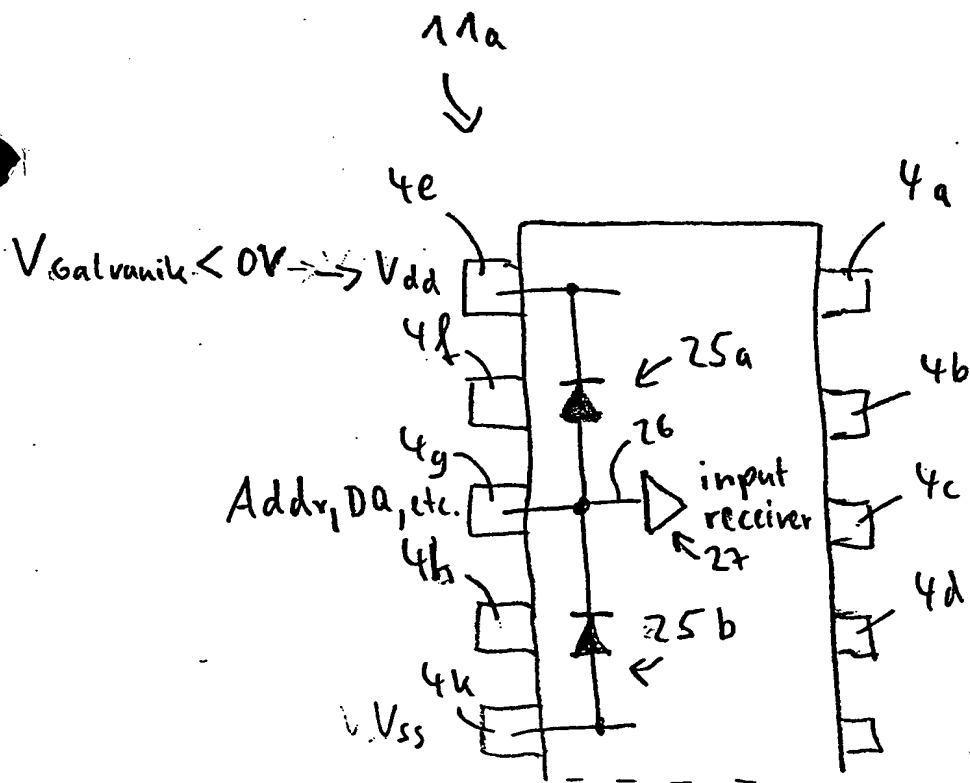 11a
4e
4a
V Galvanik < 0V → Vdd
4f
25a
4b
4g
26
Addr, DQ, etc.
input
receiver
4c
27
4h
4d
25b
4k
Vss